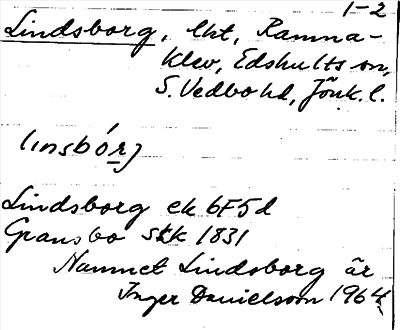 1-2
Lindsborg, lht, Ramna-
klev, Edshults sn,
S. Vedbo hd, Jönk. l.
linsbórj
Lindsborg ek 6F5d
Gransbo skk 1831
Namnet Lindsborg är
Inger Danielsson 1964